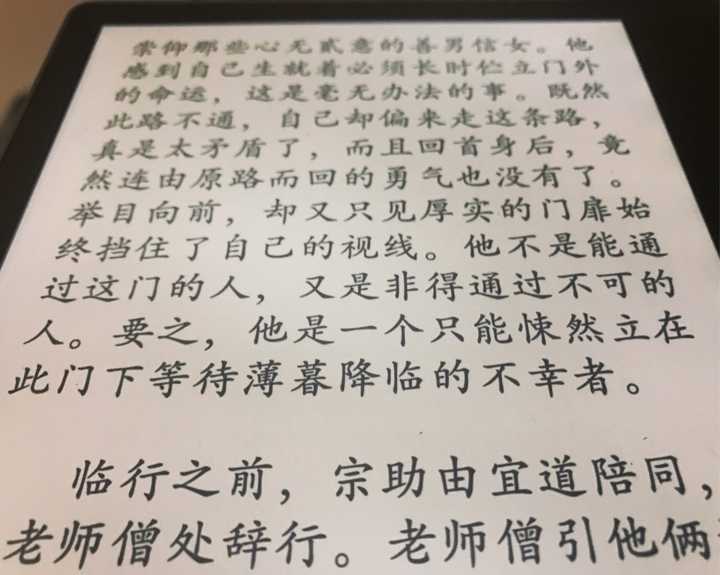 崇仰那些心无贰意的善男信女。他
感到自己生就着必须长时伫立门外
的命运，这是毫无办法的事。既然
此路不通，自己却偏来走这条路，
真是太矛盾了，而且回首身后，竟
然连由原路而回的勇气也没有了。
举目向前，却又只见厚实的门扉始
终挡住了自己的视线。他不是能通
过这门的人，又是非得通过不可的
人。要之，他是一个只能悚然立在
此门下等待薄暮降临的不幸者。
临行之前，宗助由宜道陪同，
老师僧处辞行。老师僧引他俩